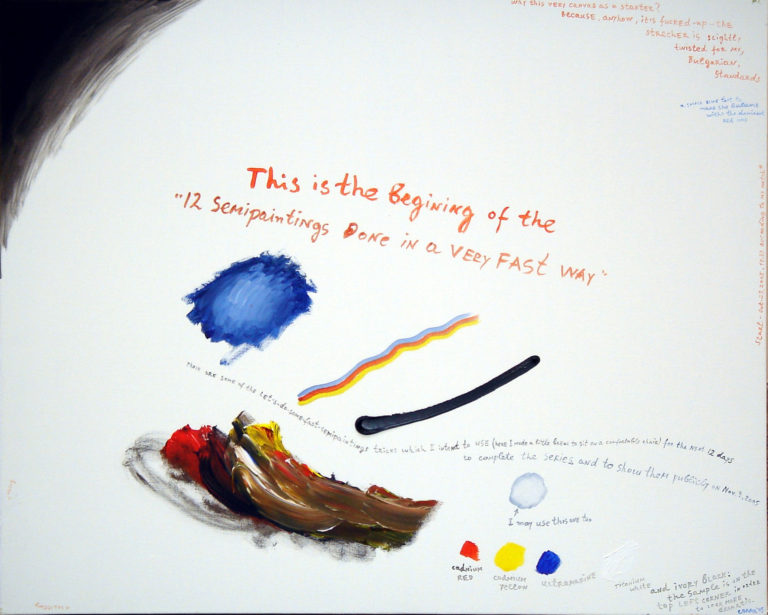 Why this very canvas as a starter?
Because, anyhow, it is fucked-up - the
strecher is slightly
twisted for my,
Bulgarian,
Standards
to
make the Balance
with the dominant
red one
This is the Begining of the
"12 Semipaintings Done in a VERY FAST WAY"
Here are some of the Let's-do-some-fast-semipaintings tricks which I intent to USE (here I made a little break to sit on a comfortable chair) for the next 12 days
to complete the SERIES and to show them publicly on Nov. 9, 2005
I may use this one too
cadmium
RED
cadmium
YELLOW
ULTRAMARINE
Titanium
white
and ivory Black:
the sample is in the
top LEFT CORNER in order
to be more
dramatic
Start - Oct. 27, 2005, according to my watch